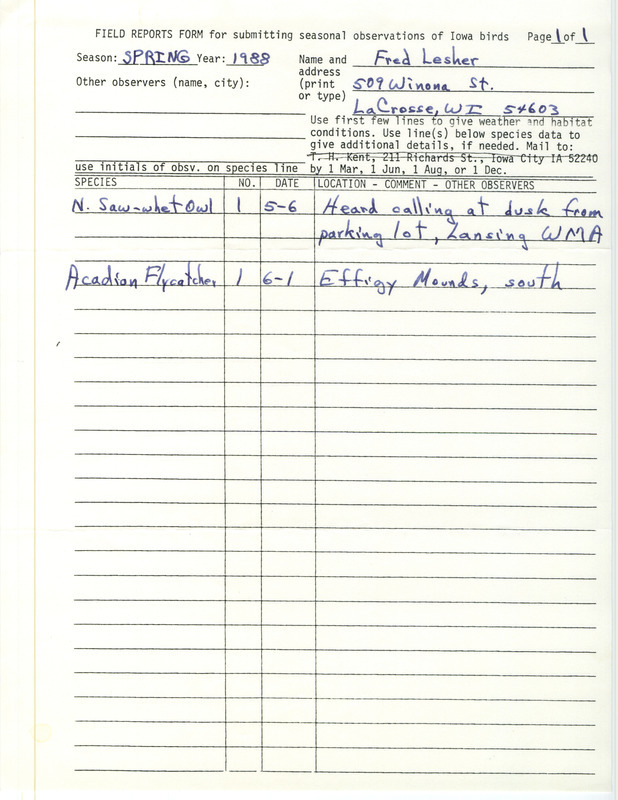 FIELD REPORTS FORM for submitting seasonal observations of Iowa birds Page 1 of 1
Season: SPRING Year: 1988
Other observers (name, city):
use initials of obsv. on species line
Name and Fred Lesher
address
(print 509 Winona St.
or type)
LaCrosse, WI 54603
Use first few lines to give weather and habitat
conditions. Use line(s) below species data to
give additional details, if needed. Mail to:
T. H. Kent, 211 Richards St., Iowa City IA 52240
by 1 Mar, 1 Jun, 1 Aug, or 1 Dec.
SPECIES NO. DATE LOCATION - COMMENT - OTHER OBSERVERS
N. Saw-whet Owl 1 5-6 Heard calling at dusk from
parking lot, Lansing WMA
Acadian Flycatcher 1 6-1 Effigy Mounds, south